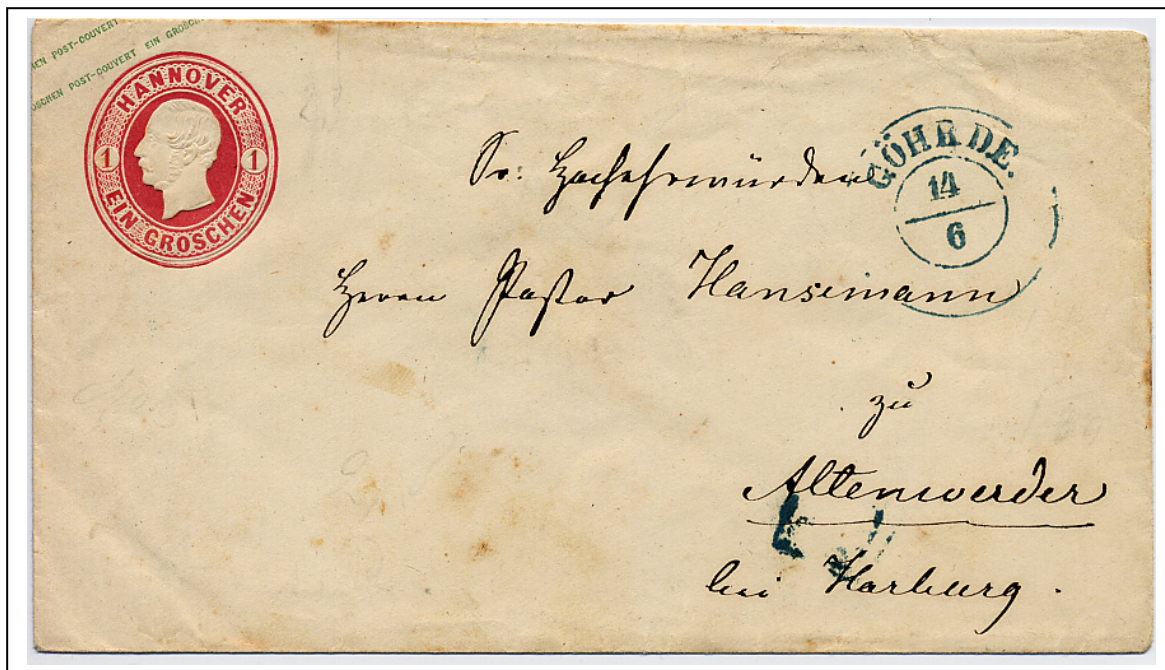 EN POST-COUVERT EIN GROSCHEN
OSCHEN POST-COUVERT EIN GROSCHEN
HANNOVER
1 1
EIN GROSCHEN
GÖHRDE.
14
6
Sr: Hochehrwürden
Herrn Pastor Hansemann
zu
Altenwerder
bei Harburg.